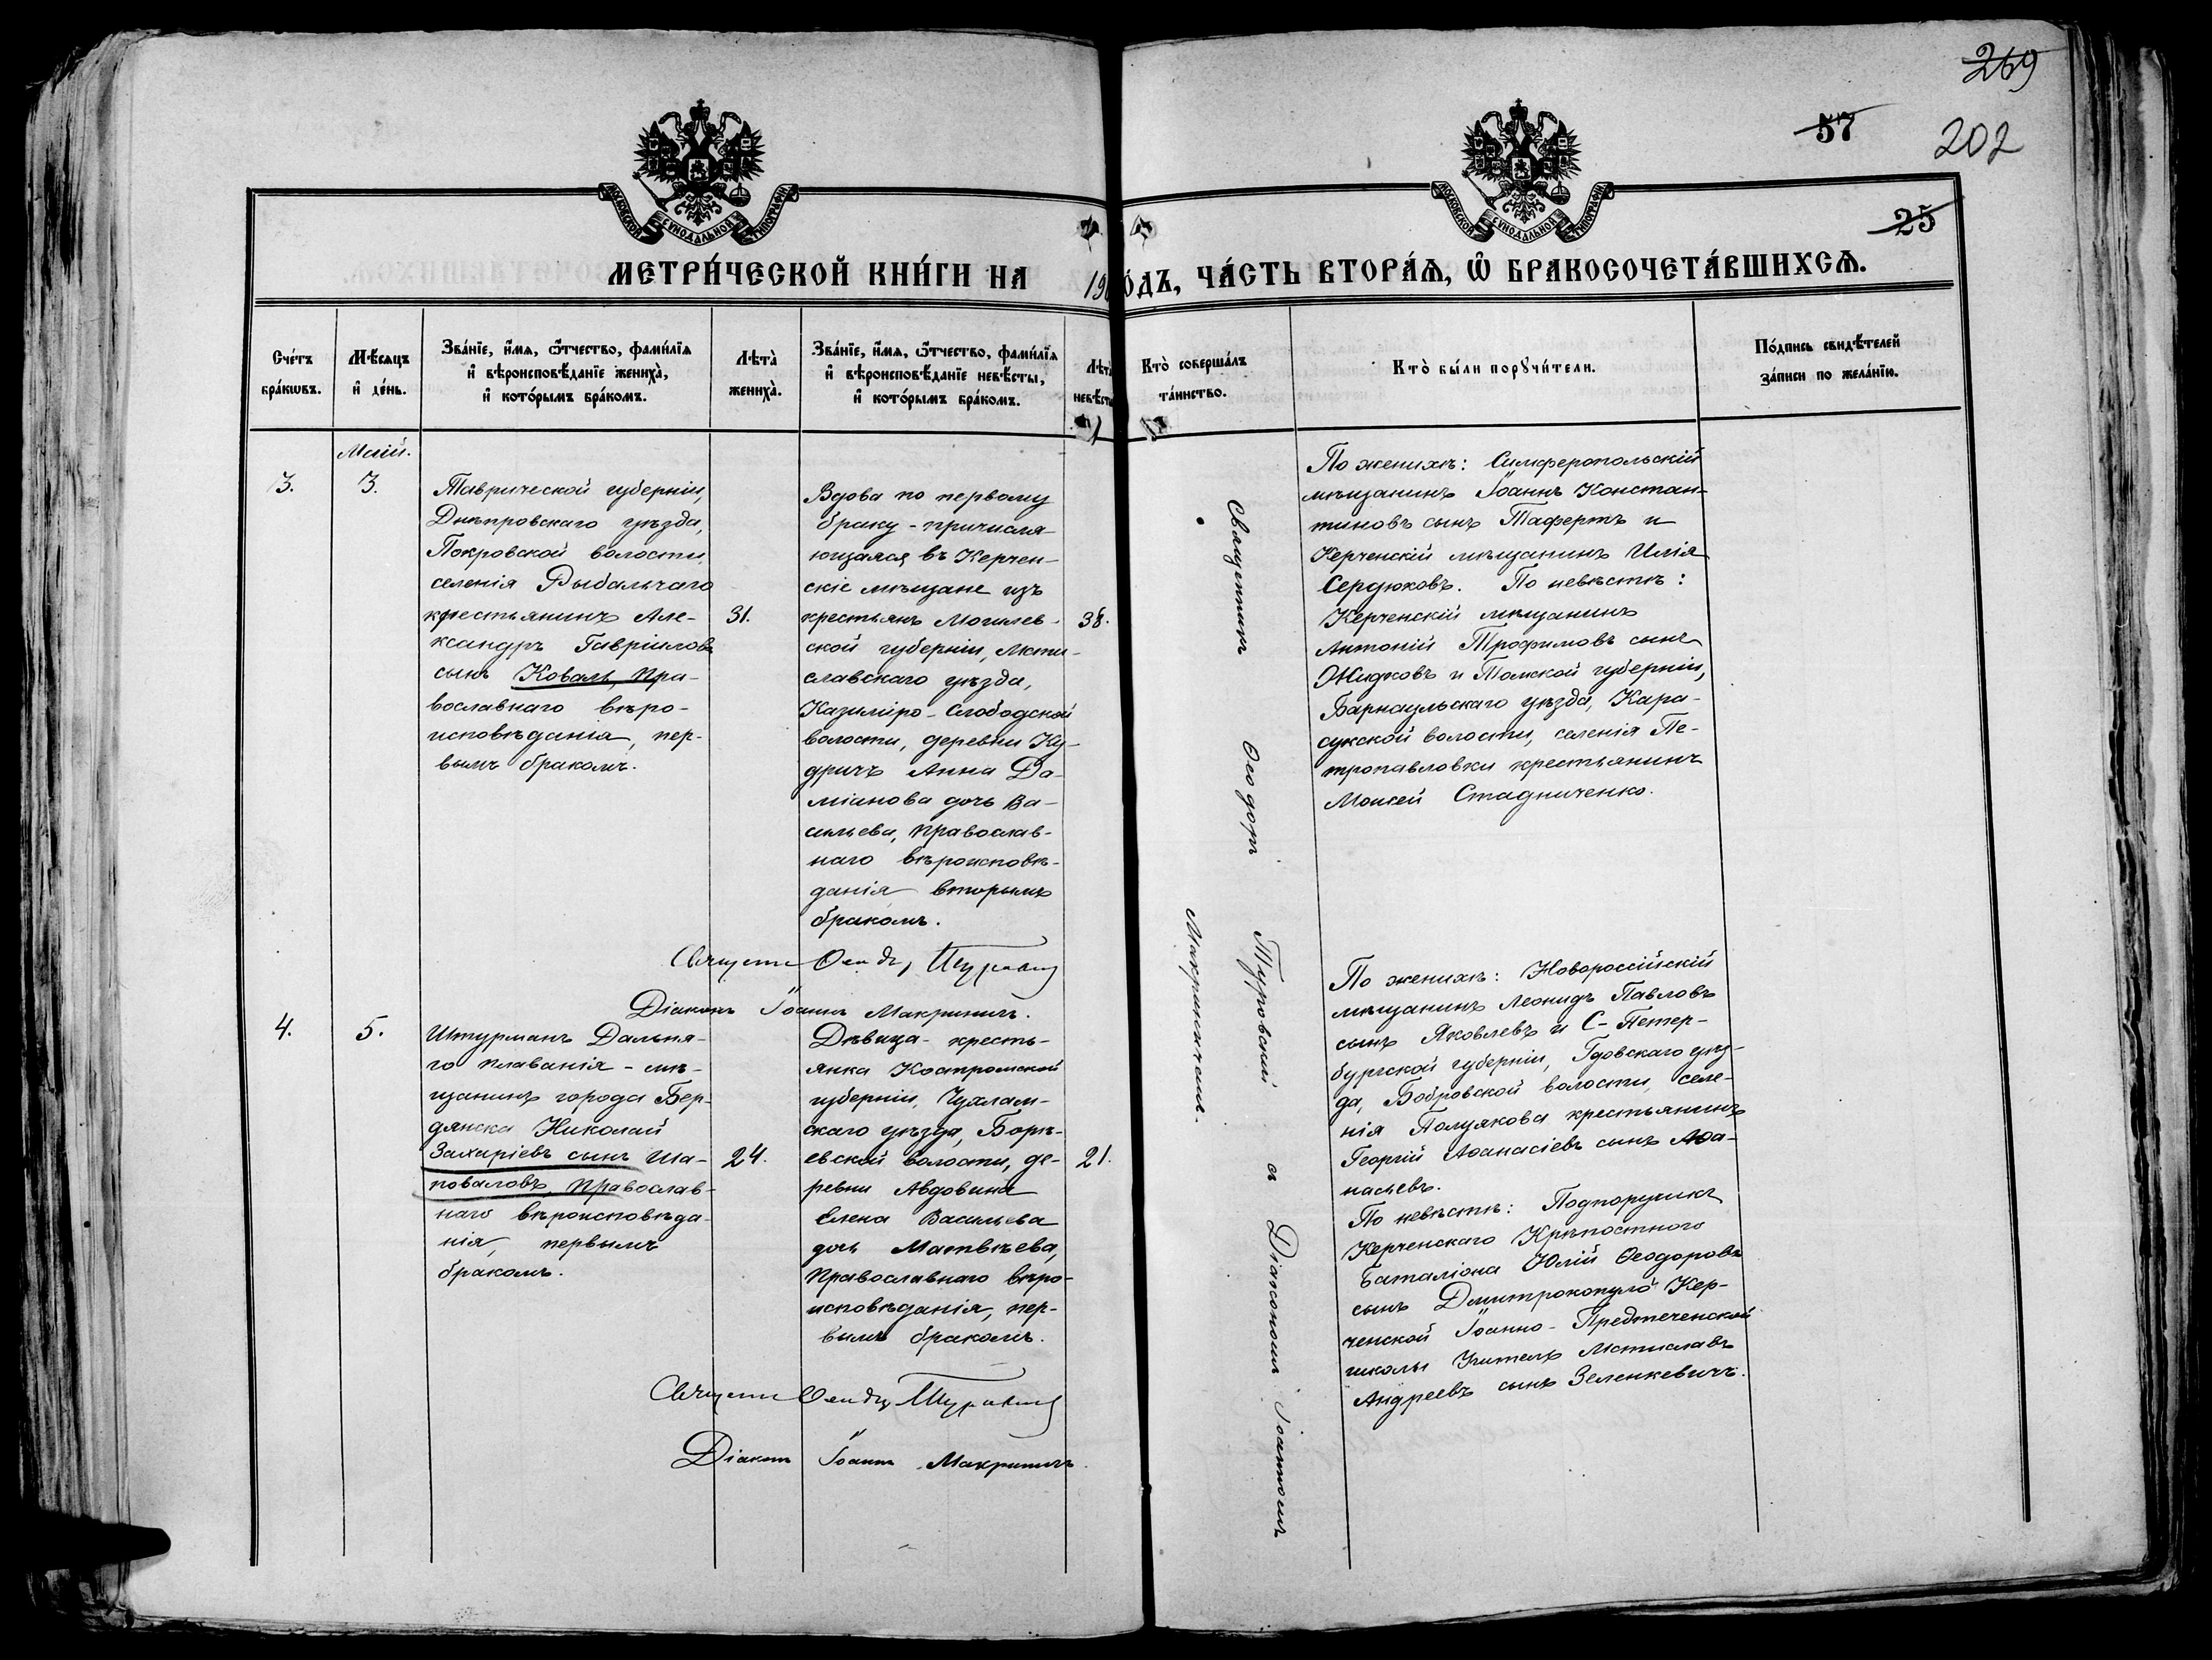 269
57
202
25
МОСКОВСКОЙ СУНОДАЛЬНОЙ ТИПОГРАФІИ
МОСКОВСКОЙ СУНОДАЛЬНОЙ ТИПОГРАФІИ
МЕТРИ́ЧЕСКОЙ КНИ́ГИ НА 190 О́ДЪ, ЧА́СТЬ ВТОРА́Ѧ, Ѽ БРАКОСОЧЕТА́ВШИХСѦ.
Сче́тъ
бра́кѡвъ.
Мѣ́сѧцъ
и҆ де́нь.
Зва́нїе, и҆́мѧ, ѻ҆́тчество, фами́лїѧ
и҆ вѣроисповѣ́данїе жениха̀,
и҆ кото́рымъ бра́комъ.
Лѣта̀
жениха̀.
Зва́нїе, и҆́мѧ, ѻ҆́тчество, фами́лїѧ
и҆ вѣроисповѣ́данїе невѣ́сты,
и҆ кото́рымъ бра́комъ.
Лѣта̀
невѣсты
Кто̀ соверша́лъ
та́инство.
Кто̀ бы́ли порꙋчи́тели.
По́дпись свидѣ́телей
за́писи по жела́нїю.
Маій.
3.
3.
Таврической губерніи,
Днѣпровскаго уѣзда,
Покровской волости,
селенія Рыбальчаго
крестьянинъ Але-
ксандръ Гавріиловъ
сынъ Коваль, Пра-
вославнаго вѣро-
исповѣданія, пер-
вымъ бракомъ.
31.
Вдова по первому
браку - причисля
ющаяся въ Керчен-
скіе мѣщане изъ
крестьянъ Могилев-
ской губерніи, Мсти-
славскаго уѣзда,
Казиміро-Слободской
волости, деревни Ку-
дричъ Анна Да-
міанова дочь Ва-
сильева, православ-
наго вѣроисповѣ-
данія вторымъ
бракомъ.
38.
Священникъ Ѳеодоръ Туровскій съ Діакономъ Іоанномъ
Макриничемъ.
По женихѣ: Симферопольскій
мѣщанинъ Іоаннъ Констан-
тиновъ сынъ Таферть и
Керченскій мѣщанинъ Илія
Сердюковъ. По невѣстѣ:
Керченскій мѣщанинъ
Антоній Трофимовъ сынъ
Жидковъ и Томской губерніи,
Барнаульскаго уѣзда, Кара-
сукской волости, селенія Пе-
тропавловки крестьянинъ
Моисей Стадниченко.
Діаконъ Іоаннъ Макриничъ.
4.
5.
Штурманъ Дальня-
го плаванія - мѣ-
щанинъ города Бер-
дянска Николай
Захаріевъ сынъ Ша-
поваловъ, Православ-
наго вѣроисповѣда-
нія, первымъ
бракомъ.
24.
Дѣвица - кресть-
янка Костромской
губерніи, Чухлам-
скаго уѣзда, Борѣ-
евской волости, де-
ревни Авдовина
Елена Васильева
дочь Матвѣева,
Православнаго вѣро-
исповѣданія, пер-
вымъ бракомъ.
21.
По женихѣ: Новороссійскій
мѣщанинъ Леонидъ Павловъ
сынъ Яковлевъ и С-Петер-
бургской губерніи, Гдовскаго уѣз-
да, Бобровской волости, селе-
нія Полуякова крестьянинъ
Георгій Аѳанасіевъ сынъ Аѳа-
насьевъ.
По невѣстѣ: Подпоручикъ
Керченскаго Крѣпостного
баталіона Юлій Ѳеодоровъ
сынъ Димитрокопуло Кер-
ченской Іоанно-Предтеченской
школы учитель Мстиславъ
Андреевъ сынъ Зеленкевичъ.
Діаконъ Іоаннъ Макриничъ.